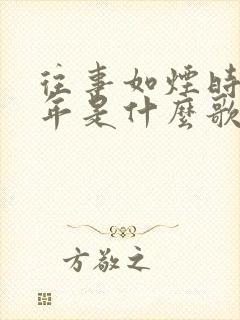 往事如煙時
年是什麼歌
方敬之